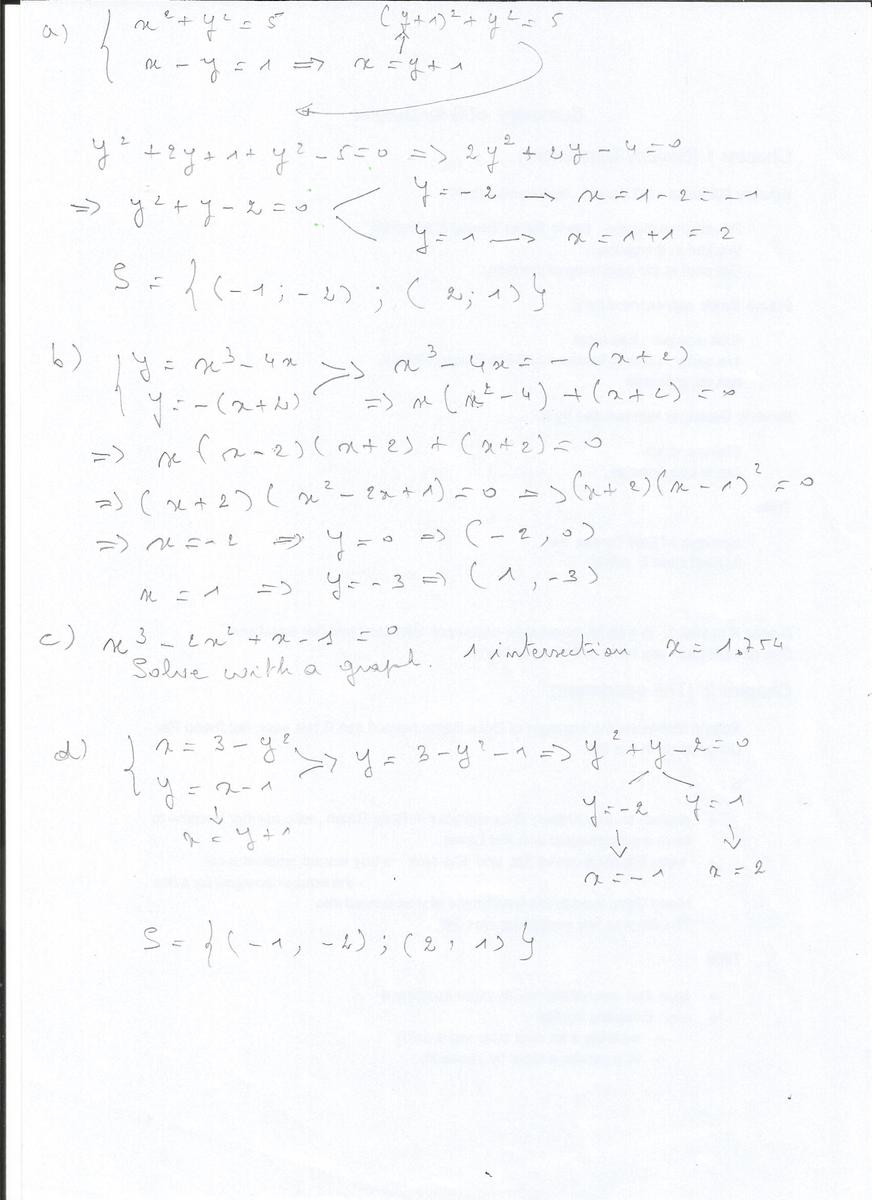 a) { x² + y² = 5 (y+1)² + y² = 5
x - y = 1 => x = y + 1
y² + 2y + 1 + y² - 5 = 0 => 2y² + 2y - 4 = 0
=> y² + y - 2 = 0 < y = -2 → x = 1 - 2 = -1
y = 1 → x = 1 + 1 = 2
S = { (-1 ; -2) ; ( 2 ; 1) }
b) { y = x³ - 4x > x³ - 4x = - (x+2)
y = -(x+2) => x (x² - 4) + (x+2) = 0
=> x (x-2) (x+2) + (x+2) = 0
=> (x+2) ( x² - 2x + 1) = 0 => (x+2)(x-1)² = 0
=> x = -2 => y = 0 => (-2, 0)
x = 1 => y = -3 => (1, -3)
c) x³ - 2x² + x - 1 = 0
Solve with a graph. 1 intersection x = 1.754
d) { x = 3 - y² > y = 3 - y² - 1 => y² + y - 2 = 0
y = x - 1 y = -2 y = 1
↓ ↓ ↓
x = y + 1 x = -1 x = 2
S = { (-1, -2) ; (2, 1) }